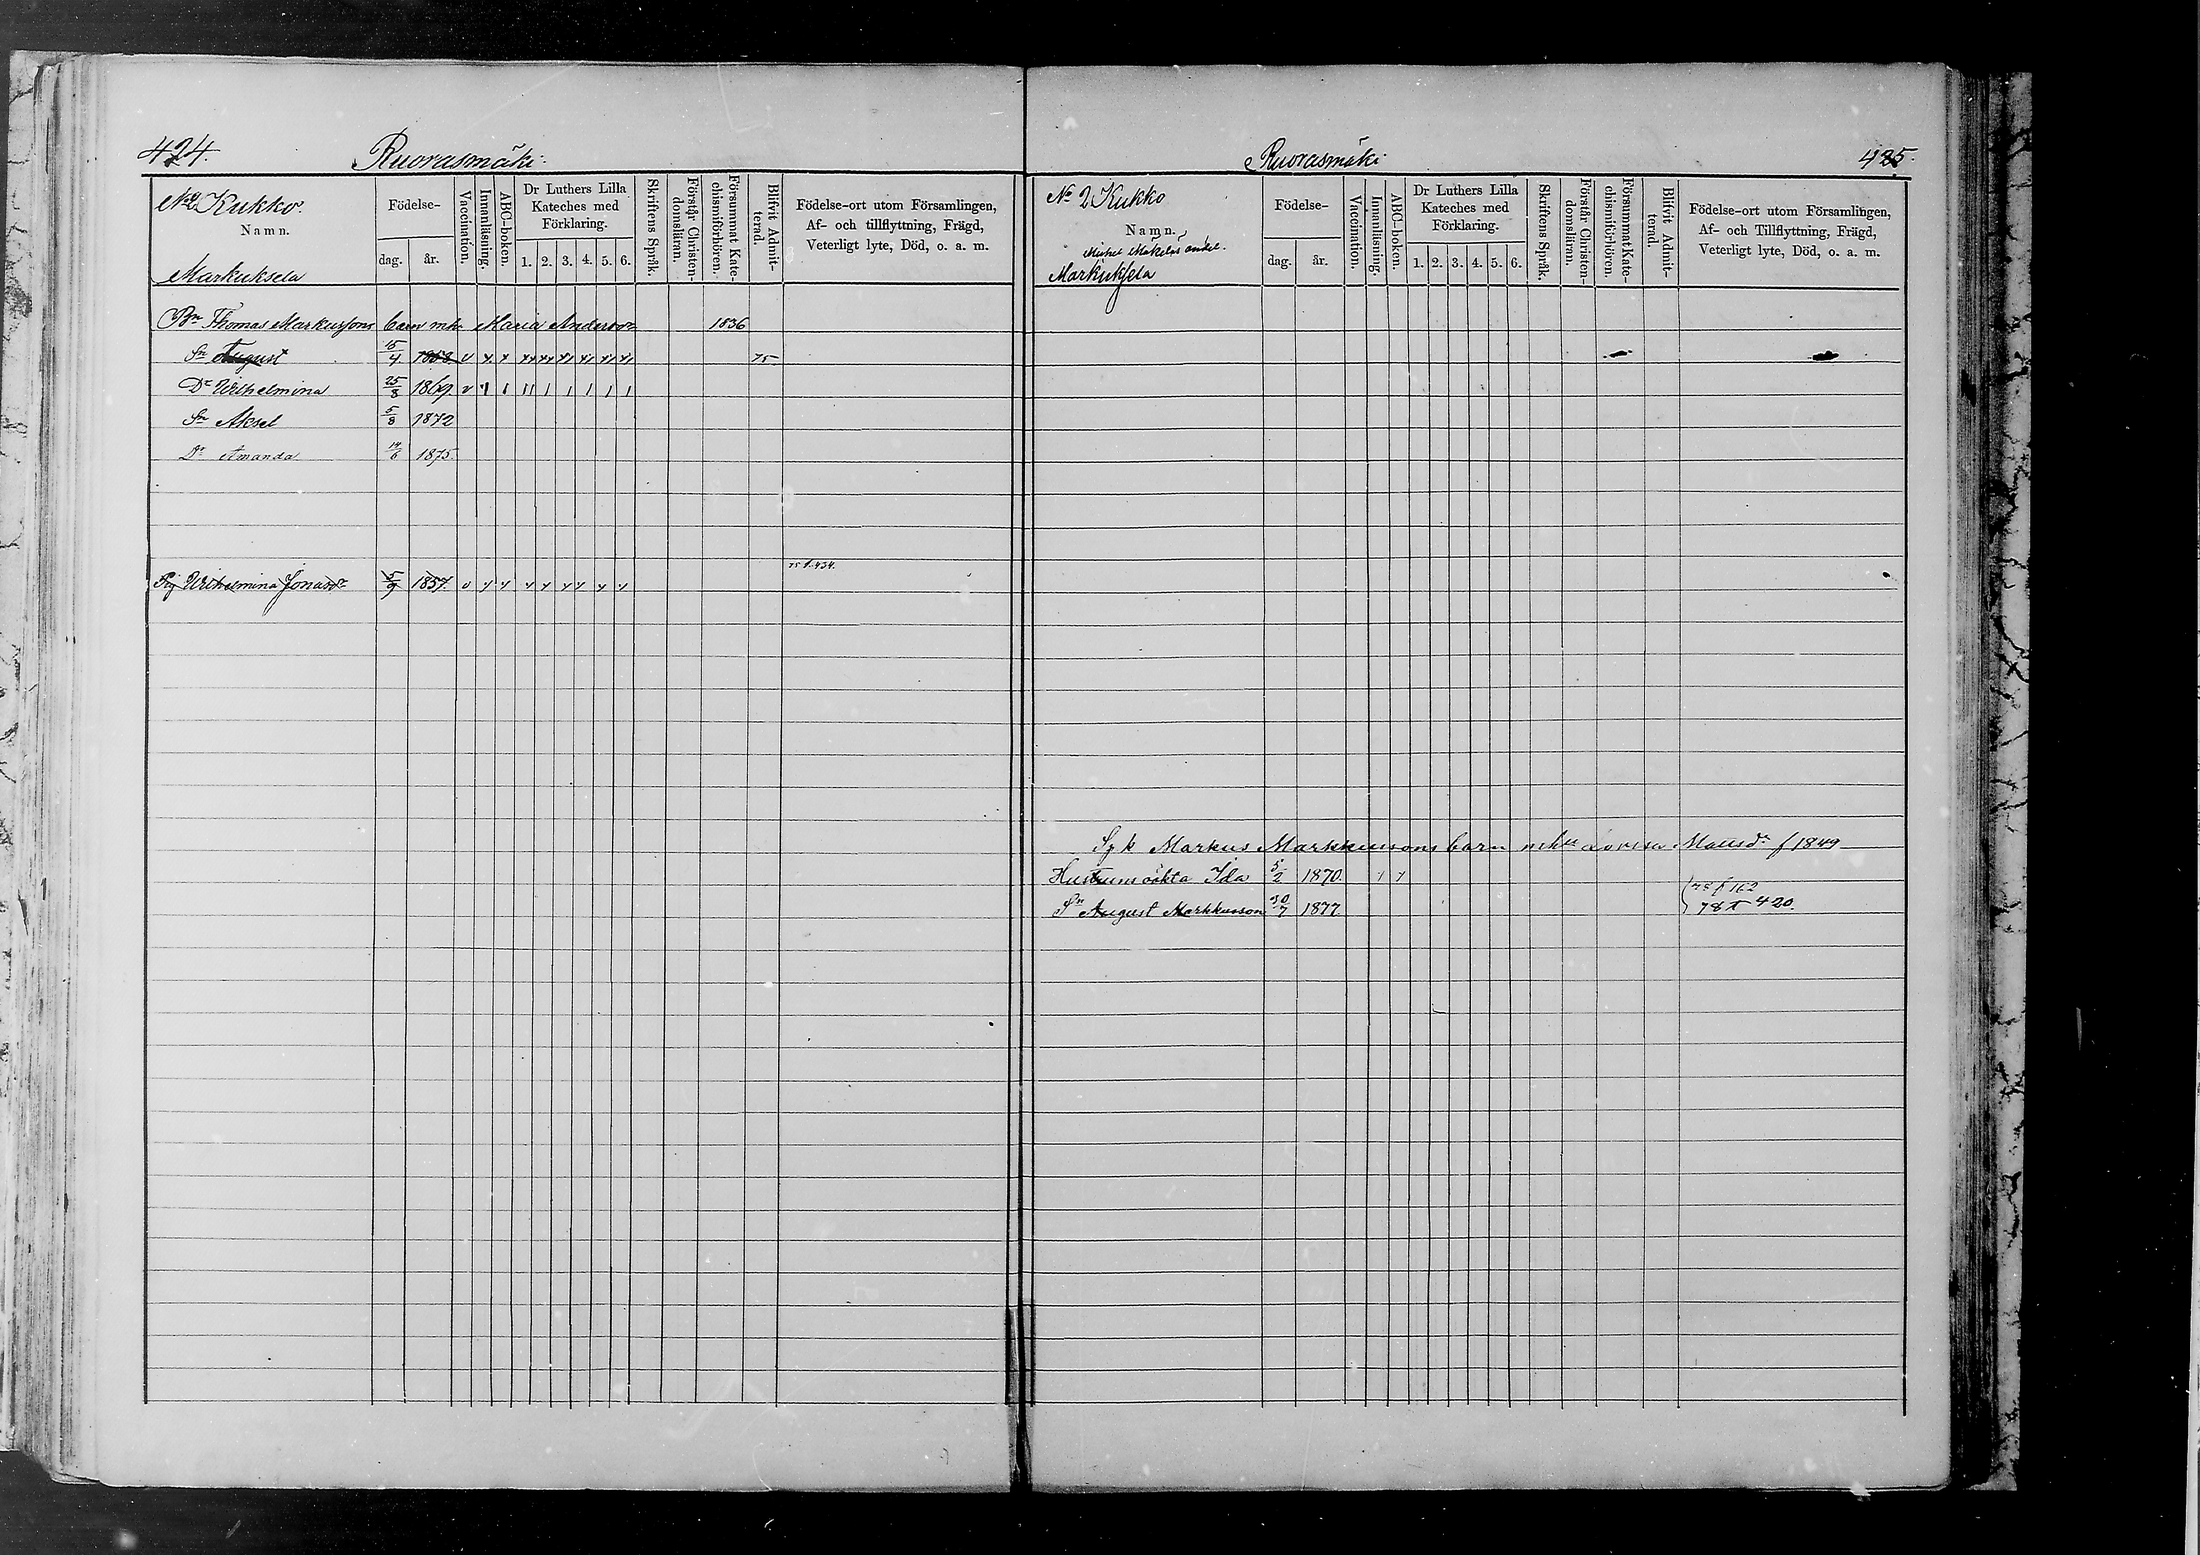 424.
Ruorasmäki
No 2 Kukko.
Namn.
Markuksela
Födelse-
dag.
år.
Vaccination.
Innanläsning.
ABC-boken.
Dr Luthers Lilla
Kateches med
Förklaring.
1. 2. 3. 4. 5. 6.
Skriftens Språk.
Förstår Christen-
domsläran.
Försummat Kate-
chismiförhören.
Blifvit Admit-
terad.
Födelse-ort utom Församlingen,
Af- och tillflyttning, Frägd,
Veterligt lyte, Död, o. a. m.
Bn Thomas Markussons barn m Maria Andersdr 1836
Sn August 15/4 1858 v 75
Dr Wilhelmina 25/8 1869. v
Sn Aksel 5/8 1872
Dr Amanda 14/6 1875.
75 f. 434.
Pig Wilhelmina Jonasdr 5/9 1857. v
Ruorasmäki
425.
No 2 Kukko
Namn.
Michel Mäkeläs andel.
Markuksela
Födelse-
dag.
år.
Vaccination.
Innanläsning.
ABC-boken.
Dr Luthers Lilla
Kateches med
Förklaring.
1. 2. 3. 4. 5. 6.
Skriftens Språk.
Förstår Christen-
domsläran.
Försummat Kate-
chismiförhören.
Blifvit Admit-
terad.
Födelse-ort utom Församlingen,
Af- och Tillflyttning, Frägd,
Veterligt lyte, Död, o. a. m.
Markus Markkussons barn Lovisa Mattsdr f 1849
Hustruns oäkta Ida 5/2 1870.
78 f 162
Sn August Markkusson 30/7 1877.
78 f 420.